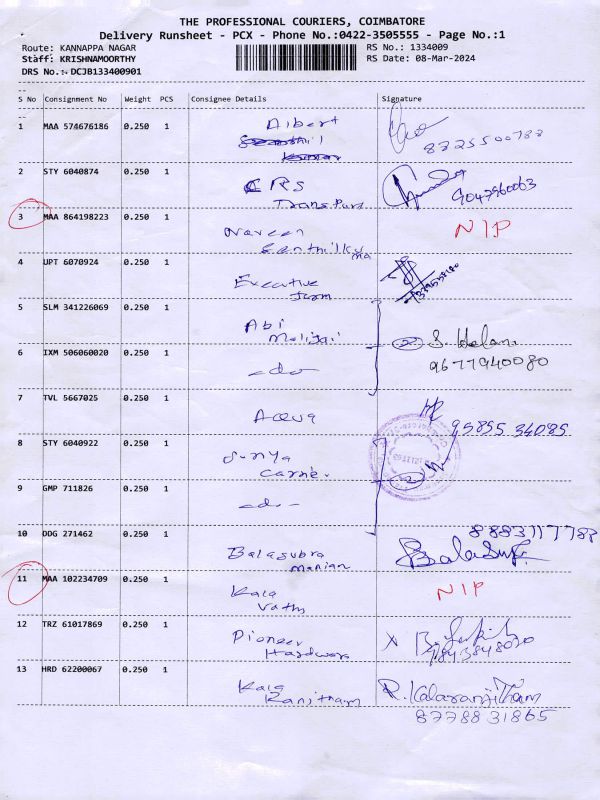 THE PROFESSIONAL COURIERS, COIMBATORE
Delivery Runsheet - PCX - Phone No.:0422-3505555 - Page No.:1
Route: KANNAPPA NAGAR RS No.: 1334009
Staff: KRISHNAMOORTHY RS Date: 08-Mar-2024
DRS No.:- DCJB133400901
S No Consignment No Weight PCS Consignee Details Signature
1 MAA 574676186 0.250 1 Albert
2 STY 6040874 0.250 1 CRS 9047960063
3 MAA 864198223 0.250 1 Naveen NIP
Senthilkuma
4 UPT 6070924 0.250 1 Executive
5 SLM 341226069 0.250 1 Abi
6 IXM 506060020 0.250 1 -do- 9677940080
7 TVL 5667025 0.250 1 95855 34085
8 STY 6040922 0.250 1 Surya
9 GMP 711826 0.250 1 -do-
10 DDG 271462 0.250 1 Balasubra 8883117788
manian
11 MAA 102234709 0.250 1 Kala NIP
vathi
12 TRZ 61017869 0.250 1 Pioneer
Hardware
13 HRD 62200067 0.250 1 Kala
Ranjitham
8778831865